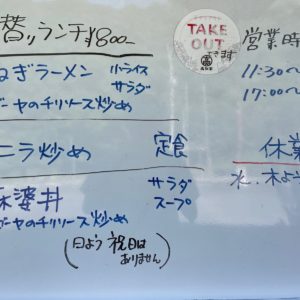 替りランチ¥800-
ねぎラーメン 小ライス
サラダ
ゴーヤのチリソース炒め
ニラ炒め 定食
麻婆丼 サラダ
スープ
ゴーヤのチリソース炒め
(日よう 祝日は
ありません)
TAKE
OUT
できます
営業時
11:30～
17:00～
休業
水、木よう